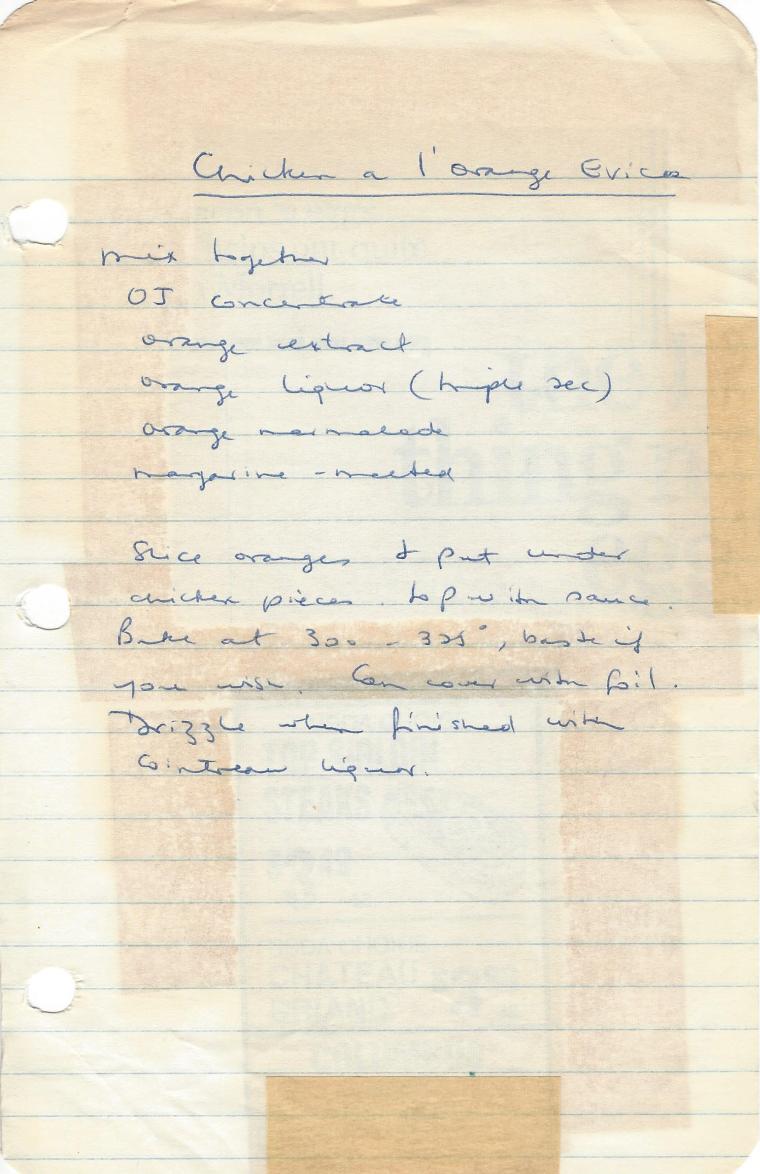 Chicken a l'orange Evicos
mix together
OJ concentrate
orange extract
orange liquor (triple sec)
orange marmalade
margarine - melted
Slice oranges & put under
chicken pieces. top with sauce.
Bake at 300 - 325°, baste if
you wish. Can cover with foil.
Drizzle when finished with
Cointreau liquor.